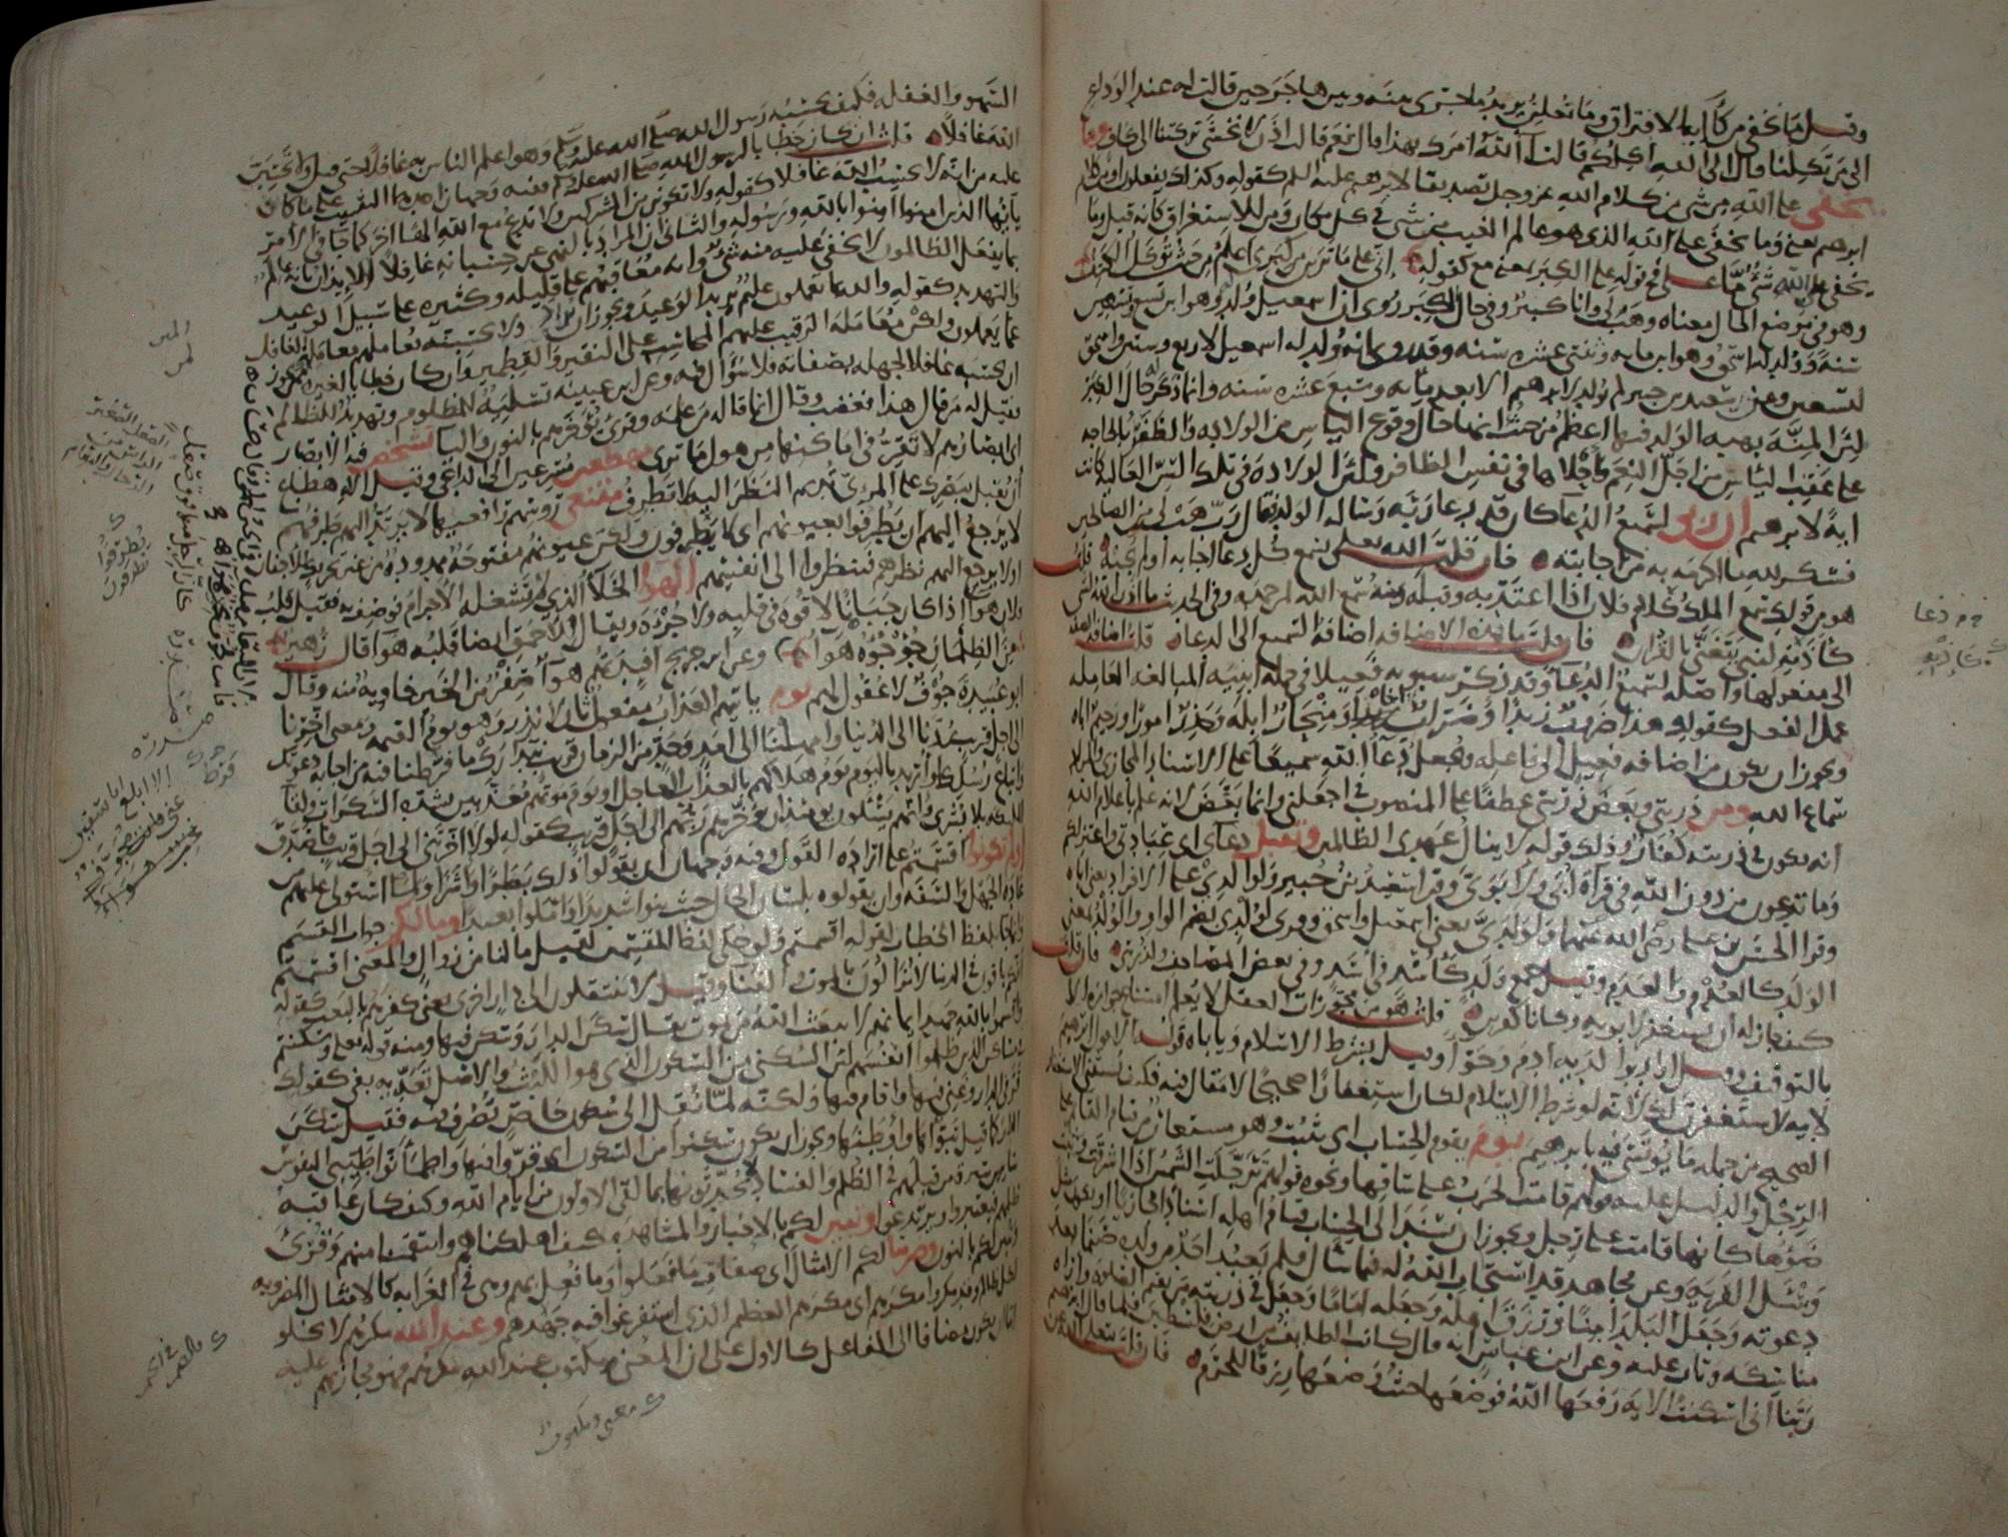 وقيل ما نخفي من كآبة الافتراق وما نعلن يريد ما جرى بينه وبين هاجر حين قالت له عند الوداع
الى من تكلنا قال الى الله اكلكم قالت آلله امرك بهذا قال نعم قالت اذن لا نخشى تركتنا الى كاف وما
يخفى على الله من شي من كلام الله عز وجل تصديقا لابرهيم عليه السلم كقوله وكذلك يفعلون او من كلام
ابرهيم يعني وما يخفى على الله الذي هو عالم الغيب من شي في كل مكان ومن للاستغراق كانه قيل وما
يخفى على الله شي ما على في قوله على الكبر بمعنى مع كقوله اني على ما ترين من كبري اعلم من حيث تؤكل الكتف
وهو في موضع الحال معناه وهب لي وانا كبير وفي حال الكبر روى ان اسمعيل ولد له وهو ابن تسع وتسعين
سنة وولد له اسحق وهو ابن مايه وثنتي عشره سنه وقد روى انه ولد له اسمعيل لاربع وستين واسحق
لتسعين وعن سعيد بن جبير لم يولد لابرهيم الا بعد مائه وسبع عشره سنه وانما ذكر حال الكبر
لان المنة بهبة الولد فيها اعظم من حيث انها حال وقوع الياس من الولاده والظفر بالحاجه
على عقب الياس من اجل النعم واجلاها في نفس الظافر ولان الولادة في تلك السن العاليه كانت
اية لابرهيم ان ربي لسميع الدعا كان قد دعا ربه وساله الولد فقال رب هب لي من الصالحين
فشكر لله ما اكرمه به من اجابته فان قلت الله تعلى يسمع كل دعا اجابه او لم يجبه قلت
هو من قولك سمع الملك كلام فلان اذا اعتد به وقبله ومنه سمع الله لمن حمده وفي الحديث ما اذن الله لشي
كاذنه لنبي يتغنى بالقران فان قلت ما هذه الاضافه اضافة السميع الى الدعا قلت اضافة الصفة
الى مفعولها واصله لسميع الدعآ وقد ذكر سيبويه فعيلا في جملة ابنية المبالغة العامله
عمل الفعل كقولك هذا ضروب زيدا وضراب اخاه ومنحار ابله وحذر امورا ورحيم اباه
ويجوز ان يكون من اضافه فعيل الى فاعله ويجعل دعآ الله سميعا على الاسناد المجازي والمراد
سماع الله ومن ذريتي وبعض ذريتي عطفا على المنصوب في اجعلني وانما بعض لانه علم باعلام الله
انه يكون في ذريته كفار وذلك قوله لا ينال عهدي الظالمين وتقبل دعآي اي عبادتي واعتزلكم
وما تدعون من دون الله في قراة ابي ولابوي وقرا سعيد بن جبير ولوالدي على الافراد يعني اباه
وقرا الحسن بن علي رضي الله عنهما ولولدي يعني اسمعيل واسحق وقرى لولدي بضم الواو والولد بمعنى
الولد كالعدم والعدم وقيل جمع ولد كاسد في اسد وفي بعض المصاحف ولذريتي فان قلت
كيف جاز له ان يستغفر لابويه وكانا كافرين قلت هو من مجوزات العقل لا يعلم امتناع جوازه الا
بالتوقيف وقيل اراد بوالديه ادم وحوآ وقيل بشرط الاسلام وياباه قوله الا قول ابرهيم
لابيه لاستغفرن لك لانه لو شرط الاسلام لكان استغفارا صحيحا لا مقال فيه فكيف يستثنى الاستغفار
الصحيح من جمله ما يوتسى فيه بابرهيم يوم يقوم الحساب اي يثبت وهو مستعار من قيام القائم على
الرجل والدليل عليه قولهم قامت الحرب على ساقها ونحوه قولهم ترجلت الشمس اذا اشرقت وثبت
ضوؤها كانها قامت على رجل ويجوز ان يسند الى الحساب قيام اهله اسنادا مجازيا او يكون مثل
وسئل القرية وعن مجاهد قد استجاب الله له فيما سال فلم يعبد احد من ولده صنما بعد
دعوته وجعل البلد امنا ورزق اهله وجعله اماما وجعل في ذريته من يقيم الصلوة واراه
مناسكه وتاب عليه وعن ابن عباس انه قال كانت الطايف من ارض فلسطين فلما قال ابرهيم
ربنا اني اسكنت الايه رفعها الله فوضعها حيث وضعها رزقا للحرم فان قلت يتعالى الله عن
السهو والغفله فكيف يحسبه رسول الله صلى الله عليه وسلم وهو اعلم الناس به غافلا حتى قيل ولا تحسبن
الله غافلا قلت ان كان خطابا لرسول الله صلى الله عليه وسلم ففيه وجهان احدهما التثبيت على ما كان
عليه من انه لا يحسب الله غافلا كقوله ولا تكونن من المشركين ولا تدع مع الله الها اخر كما جا في الامر
يآيها الذين امنوا امنوا بالله ورسوله والثاني ان المراد بالنهي عن حسبانه غافلا الايذان بانه عالم
بما يفعل الظالمون لا يخفى عليه منه شي وانه معاقبهم على قليله وكثيره على سبيل الوعيد
والتهديد كقوله والله بما تعملون عليم يريد الوعيد ويجوز ان يراد ولا تحسبنه يعاملهم معاملة الغافل
عما يعملون ولكن معاملة الرقيب عليهم المحاسب على النقير والقطمير وان كان خطابا لغيره ممن يجوز
ان يحسبه غافلا لجهله بصفاته فلا سؤال فيه وعن ابن عيينة تسلية للمظلوم وتهديد للظالم
فقيل له من قال هذا فغضب وقال انما قاله من علمه وقرى نؤخرهم بالنون واليا تشخص فيه الابصار
اي ابصارهم لا تقر في اماكنها من هول ما ترى مهطعين مسرعين الى الداعي وقيل الاهطاع
ان تقبل ببصرك على المرئي تديم النظر اليه لا تطرف مقنعي روسهم رافعيها لا يرتد اليهم طرفهم
لا يرجع اليهم ان يطرفوا بعيونهم اي لا يطرفون ولكن عيونهم مفتوحة ممدودة من غير تحريك للاجفان
او لا يرجع اليهم نظرهم فينظروا الى انفسهم الهوا الخلآ الذي لم تشغله الاجرام فوصف به فقيل قلب
فلان هوآ اذا كان جبانا لا قوة في قلبه ولا جرأة ويقال للاحمق ايضا قلبه هوآ قال زهير
من الظلمان جؤجؤه هوآ وعن ابن جريج افيدتهم هوآ صفر من الخير خاويه منه وقال
ابو عبيدة جوف لا عقول لهم يوم ياتيهم العذاب مفعول ثان لانذر وهو يوم القيمه ومعنى اخرنا
الى اجل قريب ردنا الى الدنيا وامهلنا الى امد وحد من الزمان قريب نتدارك ما فرطنا فيه من اجابة دعوتك
واتباع رسلك او اريد باليوم يوم هلاكهم بالعذاب العاجل او يوم موتهم معذبين بشدة السكرات ولقآ
الملئكه بلا بشرى وانهم يسئلون يومئذ ان يؤخرهم ربهم الى اجل قريب كقوله لولا اخرتني الى اجل قريب فاصدق
اولم تكونوا اقسمتم على ارادة القول وفيه وجهان ان يقولوا ذلك بطرا واشرا ولما استولى عليهم من
عادة الجهل والسفه وان يقولوه بلسان الحال حيث بنوا شديدا واملوا بعيدا ومالكم جواب القسم
وانما جا بلفظ الخطاب لقوله اقسمتم ولو حكى لفظ المقسمين لقيل ما لنا من زوال والمعنى اقسمتم
انكم باقون في الدنيا لا تزالون بالموت والفنا وقيل لا تنتقلون الى دار اخرى يعني كفرهم بالبعث كقوله
واقسموا بالله جهد ايمانهم لا يبعث الله من يموت يقال سكن الدار وسكن فيها ومنه قوله تعلى وسكنتم
في مساكن الذين ظلموا انفسهم لان السكنى من السكون الذي هو اللبث والاصل تعديه بفي كقولك
قر في الدار وغني فيها واقام فيها ولكنه لما نقل الى سكون خاص تصرف فيه فقيل سكن
الدار كما قيل تبوأها واوطنها ويجوز ان يكون سكنوا من السكون اي قروا فيها واطمأنوا طيبي النفوس
سايرين سيرة من قبلهم في الظلم والفساد لا يحدثونها بما لقي الاولون من ايام الله وكيف كان عاقبة
ظلمهم فيعتبروا ويرتدعوا وتبين لكم بالاخبار والمشاهدة كيف اهلكناهم وانتقمنا منهم وقرئ
ونبين لكم بالنون وضربنا لكم الامثال اي صفات ما فعلوا وما فعل بهم وهي في الغرابه كالامثال المضروبه
لكل ظالم وقد مكروا مكرهم اي مكرهم العظيم الذي استفرغوا فيه جهدهم وعند الله مكرهم لا يخلو
اما ان يكون مضافا الى الفاعل كالاول على ان المعنى ومكتوب عند الله مكرهم فهو مجازيهم عليه